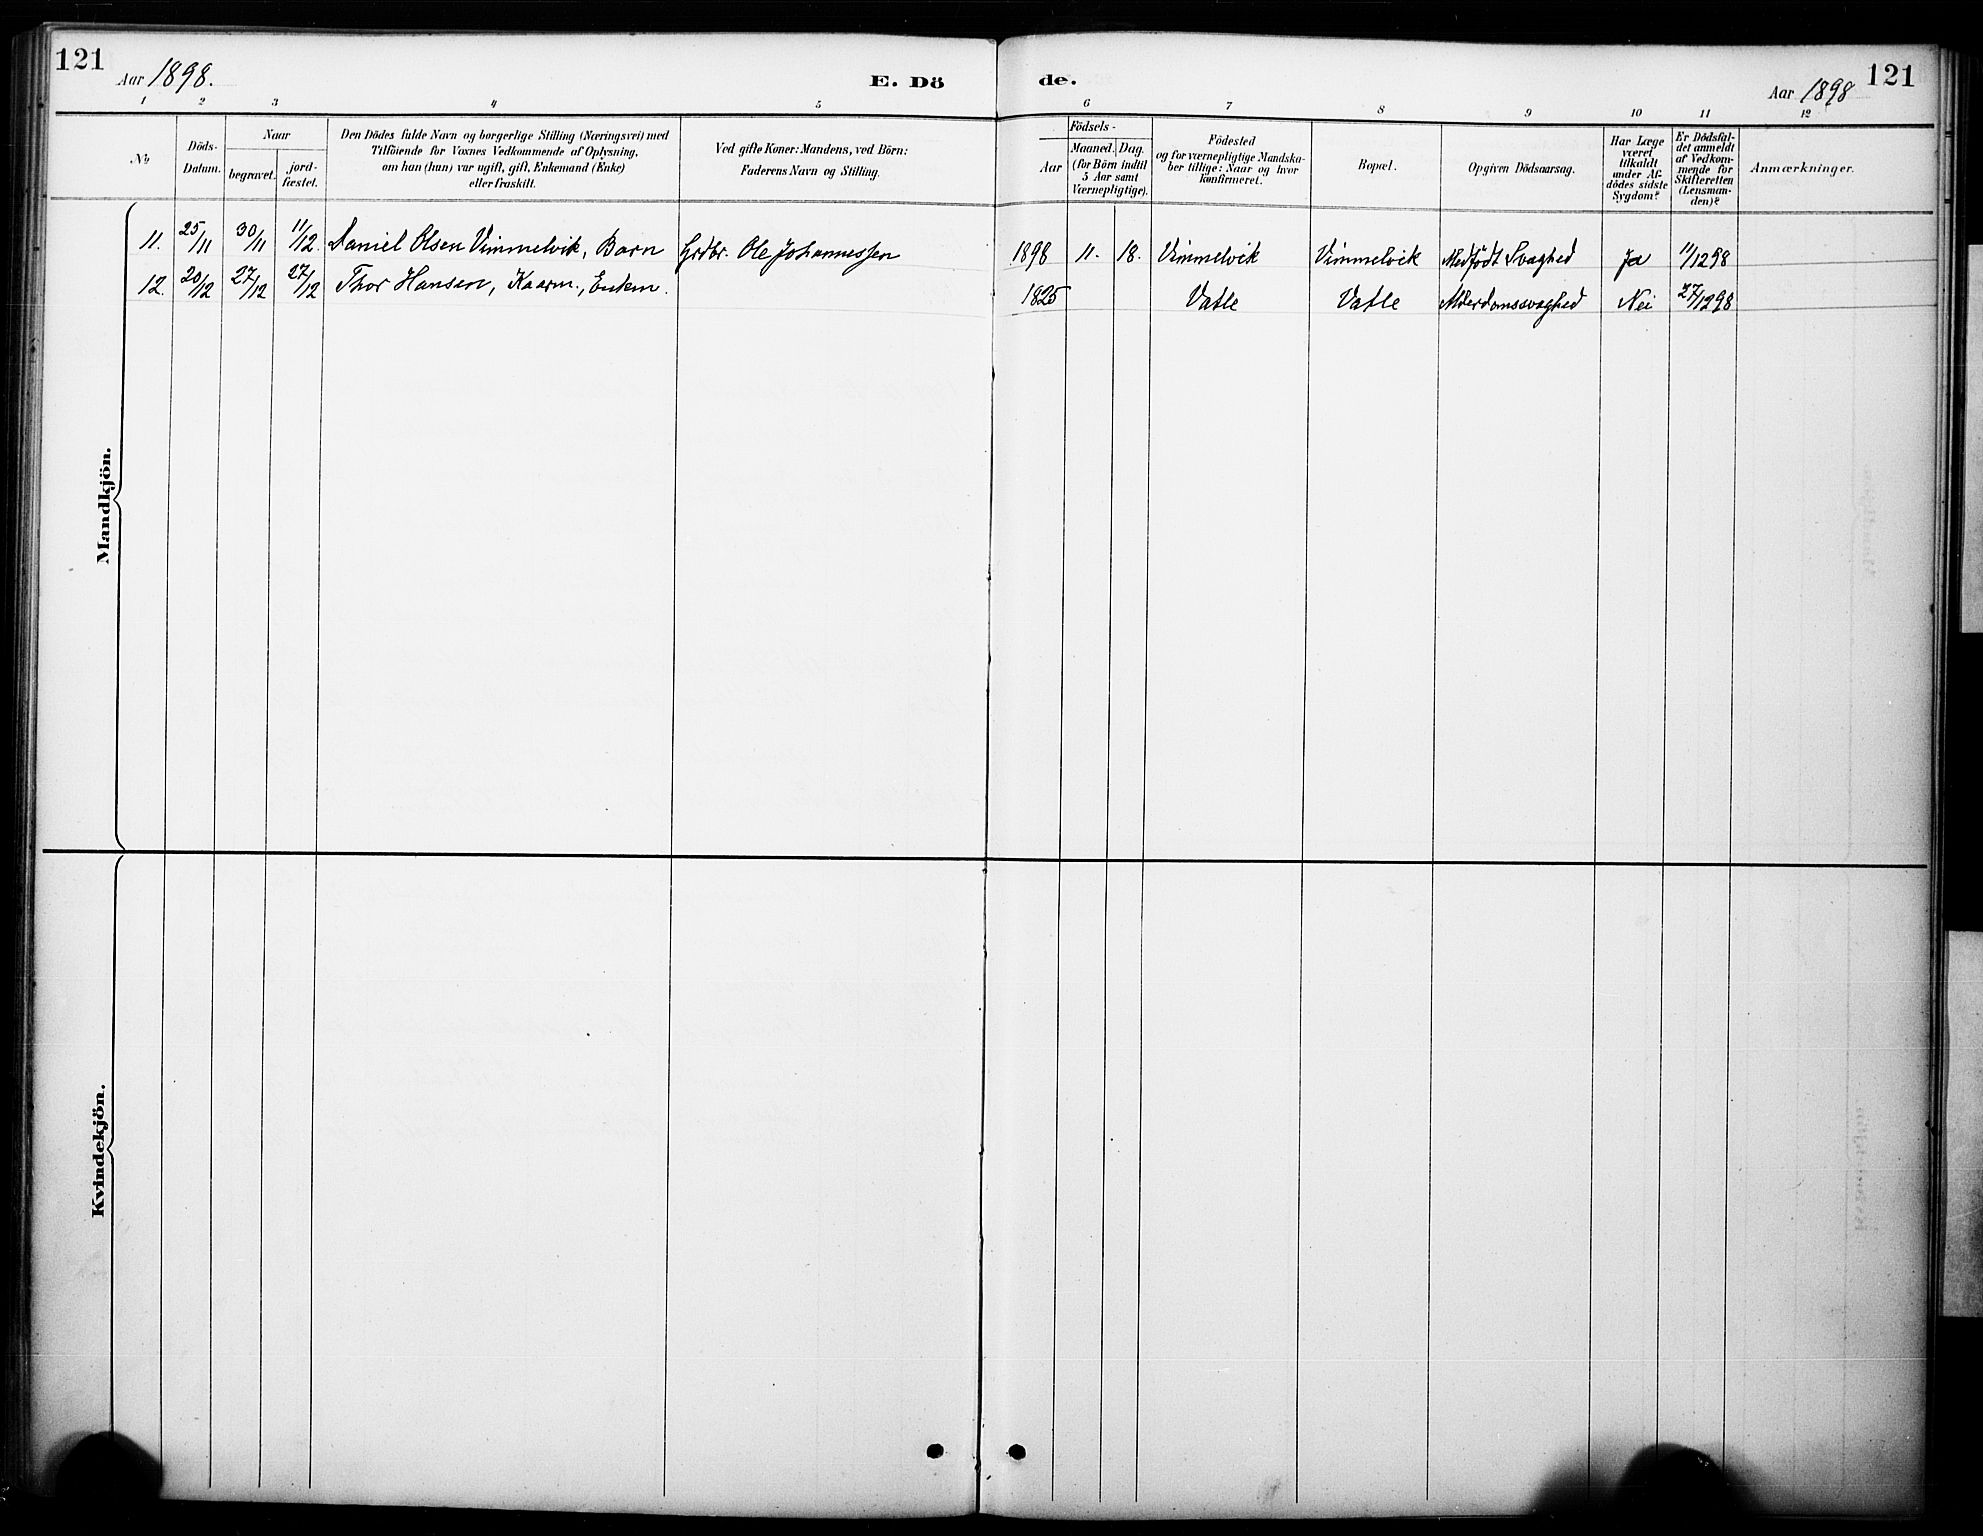 121
Aar 1898.
E. Dö
de.
Aar 1898
121
1 2 3 4 5 6 7 8 9 10 11 12
No
Döds-
Datum.
Naar
begravet.
jord-
fæstet.
Den Dödes fulde Navn og borgerlige Stilling (Næringsvei) med
Tilföiende for Voxnes Vedkommende af Oplysning,
om han (hun) var ugift, gift, Enkemand (Enke)
eller fraskilt.
Ved gifte Koner: Mandens, ved Börn:
Faderens Navn og Stilling.
Aar
Födsels-
Maaned. Dag.
(for Börn indtil
5 Aar samt
Værnepligtige).
Födested
og for værnepligtige Mandska-
ber tillige: Naar og hvor
konfirmeret.
Bopæl.
Opgiven Dödsaarsag.
Har Læge
været
tilkaldt
under Af-
dödes sidste
Sygdom?
Er Dödsfal-
det anmeldt
af Vedkom-
mende for
Skifteretten
(Lensman-
den)?
Anmærkninger.
Mandkjön.
11. 25/11 30/11 11/12 Daniel Olsen Vimmelvik, Barn Grdbr. Ole Johannessen 1898 11. 18. Vimmelvik Vimmelvik Medfödt Svaghed Ja 11/12 98
12. 20/12 27/12 27/12 Thor Hansen, Kaarm., Enkm. 1825 Vatle Vatle Alderdomssvaghed Nei 27/12 98
Kvindekjön.